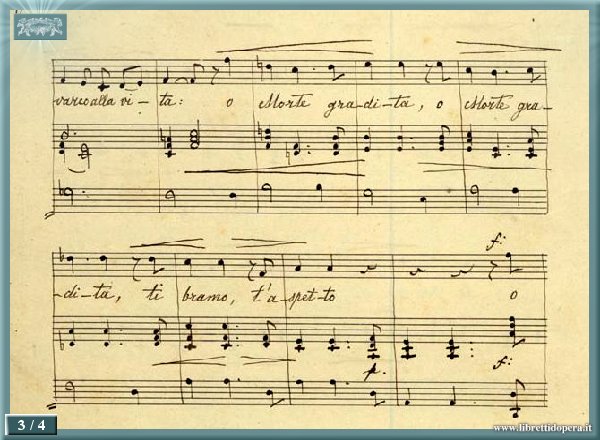 varco alla vi- ta: o Morte gra-di-ta, o Morte gra-
f:
-di-ta, ti bramo, t'a-spet-to o
p. f:
3 / 4
www.librettidopera.it